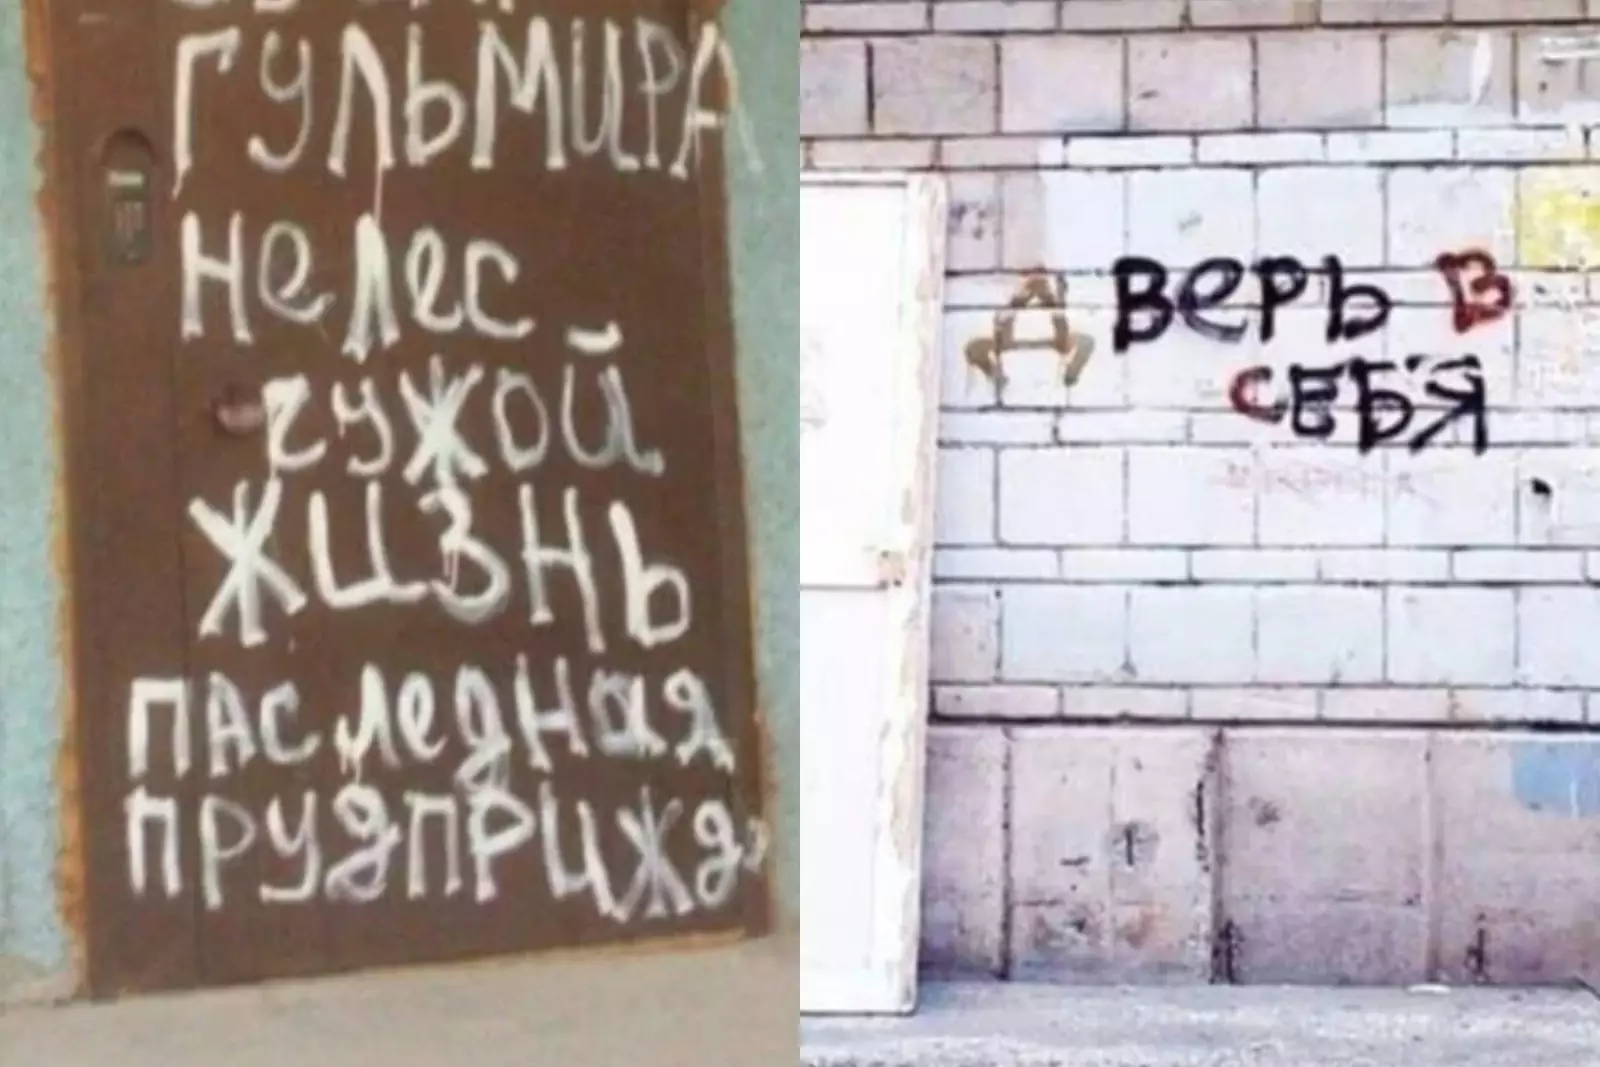 ГУЛЬМИРА
не лес
чужой
жизнь
паследная
прудприжд
Дверь в
СЕБЯ